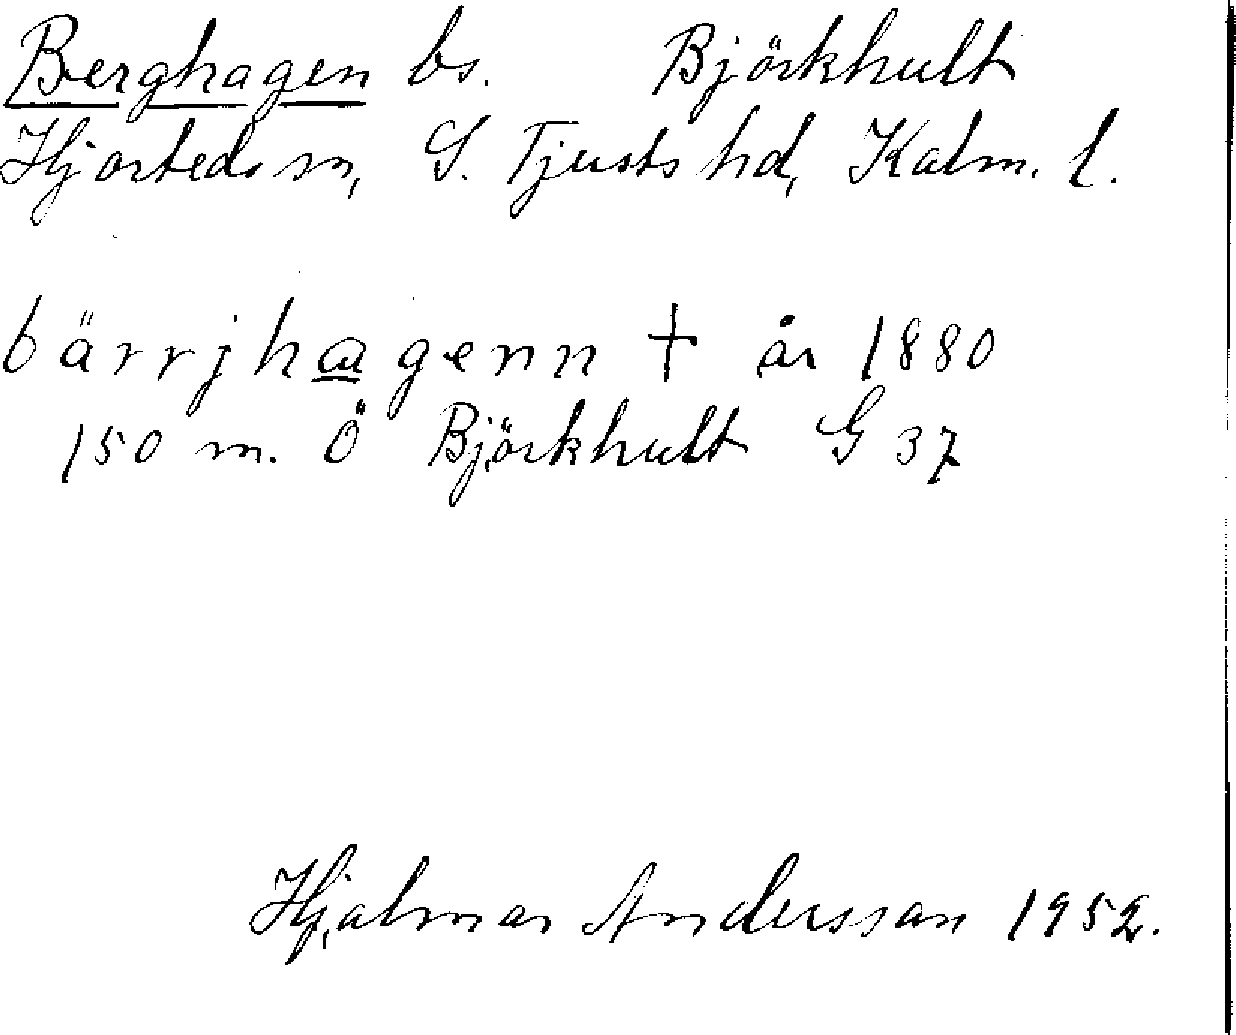 Berghagen bs. Björkhult
Hjorteds sn, S. Tjusts hd, Kalm. l.
bärrjhagenn † år 1880
150 m. Ö Björkhult G 37
Hjalmar Andersson 1952.